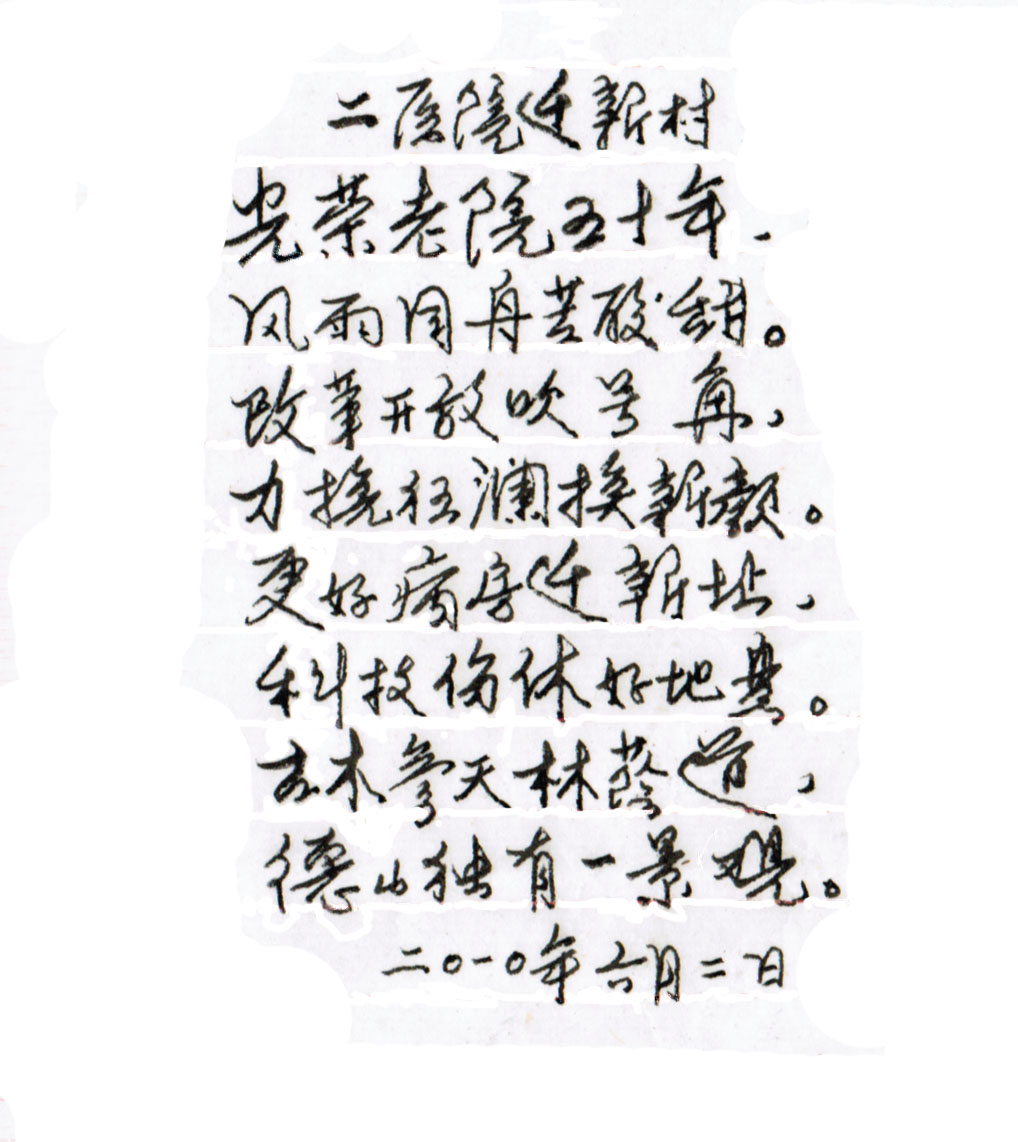 二医院迁新村
光荣老院五十年.
风雨同舟苦酸甜。
改革开放吹号角,
力挽狂澜换新颜。
更好病房迁新址,
科技伤休好地盘。
古木参天林荫道,
德山独有一景观。
二〇一〇年六月二日